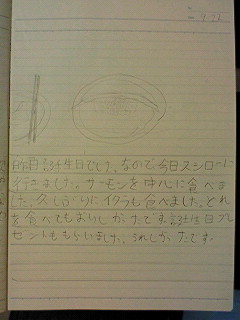 9.26
昨日誕生日でした。なので、今日スシローに
行きました。サーモンを中心に食べま
した。久しぶりにイクラも食べました。どれ
を食べてもおいしかったです。誕生日プレ
ゼントももらいました。うれしかったです。